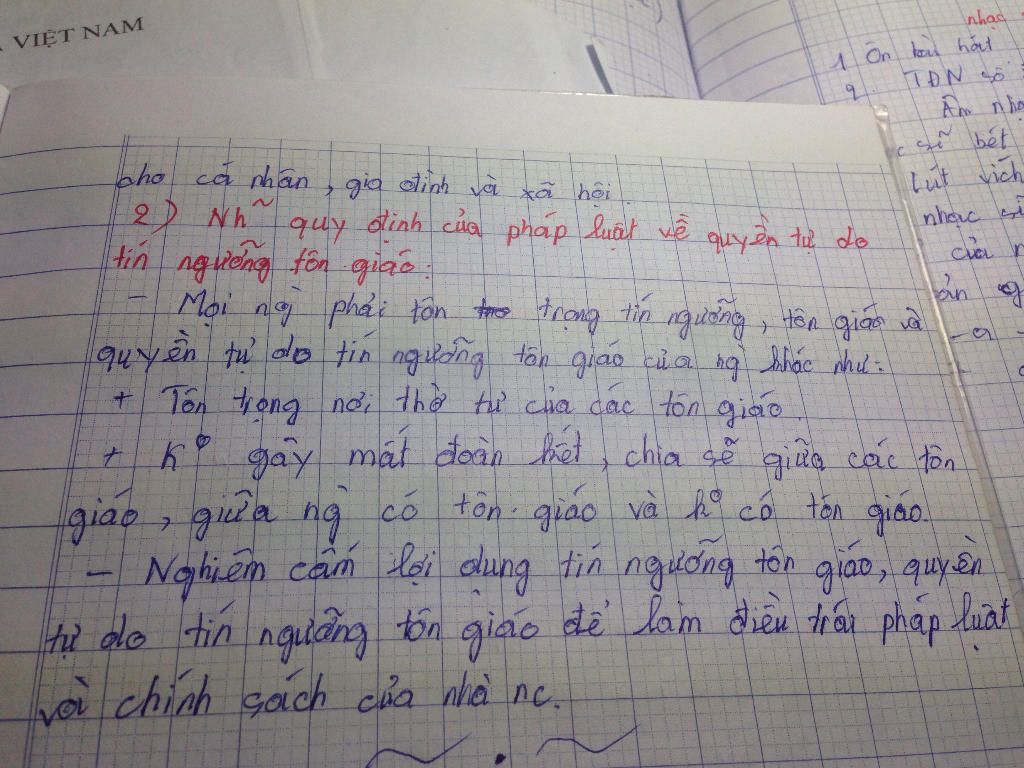 VIỆT NAM
nhạc
1 Ôn bài hát
2. TĐN số
Âm nhạ
sĩ bét
lút vích
nhạc sĩ
của n
cho cá nhân, gia đình và xã hội.
2) Nh~ quy định của pháp luật về quyền tự do
tín ngưỡng tôn giáo:
- Mọi ng` phải tôn trọng tín ngưỡng, tôn giáo và
quyền tự do tín ngưỡng tôn giáo của ng` khác như:
+ Tôn trọng nơi thờ tự của các tôn giáo.
+ K° gây mất đoàn kết, chia sẽ giữa các tôn
giáo, giữa ng` có tôn giáo và k° có tôn giáo.
- Nghiêm cấm lợi dụng tín ngưỡng tôn giáo, quyền
tự do tín ngưỡng tôn giáo để làm điều trái pháp luật
và chính sách của nhà nc.